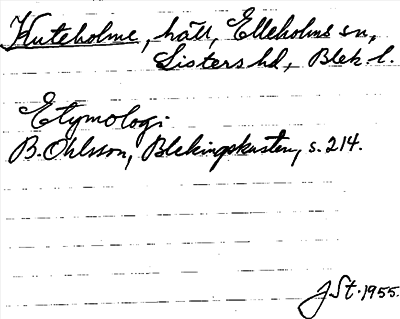 Kuteholme, häll, Elleholms sn,
Listers hd, Blek. l.
Etymologi.
B. Ohlsson, Blekingskusten, s. 214.
J. St. 1955.